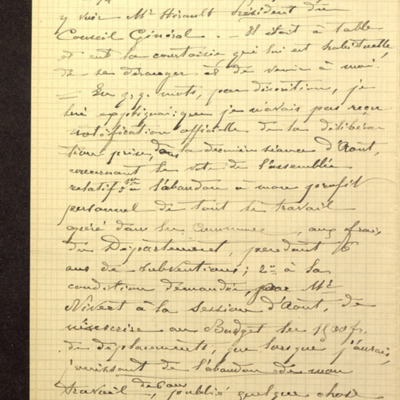 y voir Mr Hérault Président du
Conseil Général. Il était à table
et eut la courtoisie qui lui est habituelle
de se déranger et de venir à moi.
— En q.q. mots, par discrétion, je
lui expliquai: que je n'avais pas reçu
notification officielle de la délibéra-
tion prise, dans la dernière séance d'Août,
concernant le vote de l'assemblée
relatif: 1º à l'abandon à mon profit
personnel de tout le travail
opéré dans les Communes, aux frais
du Département, pendant 16
ans de subventions; 2º à la
condition demandée, par Mr
Nivert à la session d'Août, de
m'inscrire au Budget les 1500 f.
de déplacements, que lorsque j'aurais,
jouissant de l'abandon de mon
travail de 6 ans, publié quelque chose